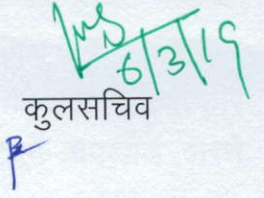 6/3/19
कुलसचिव